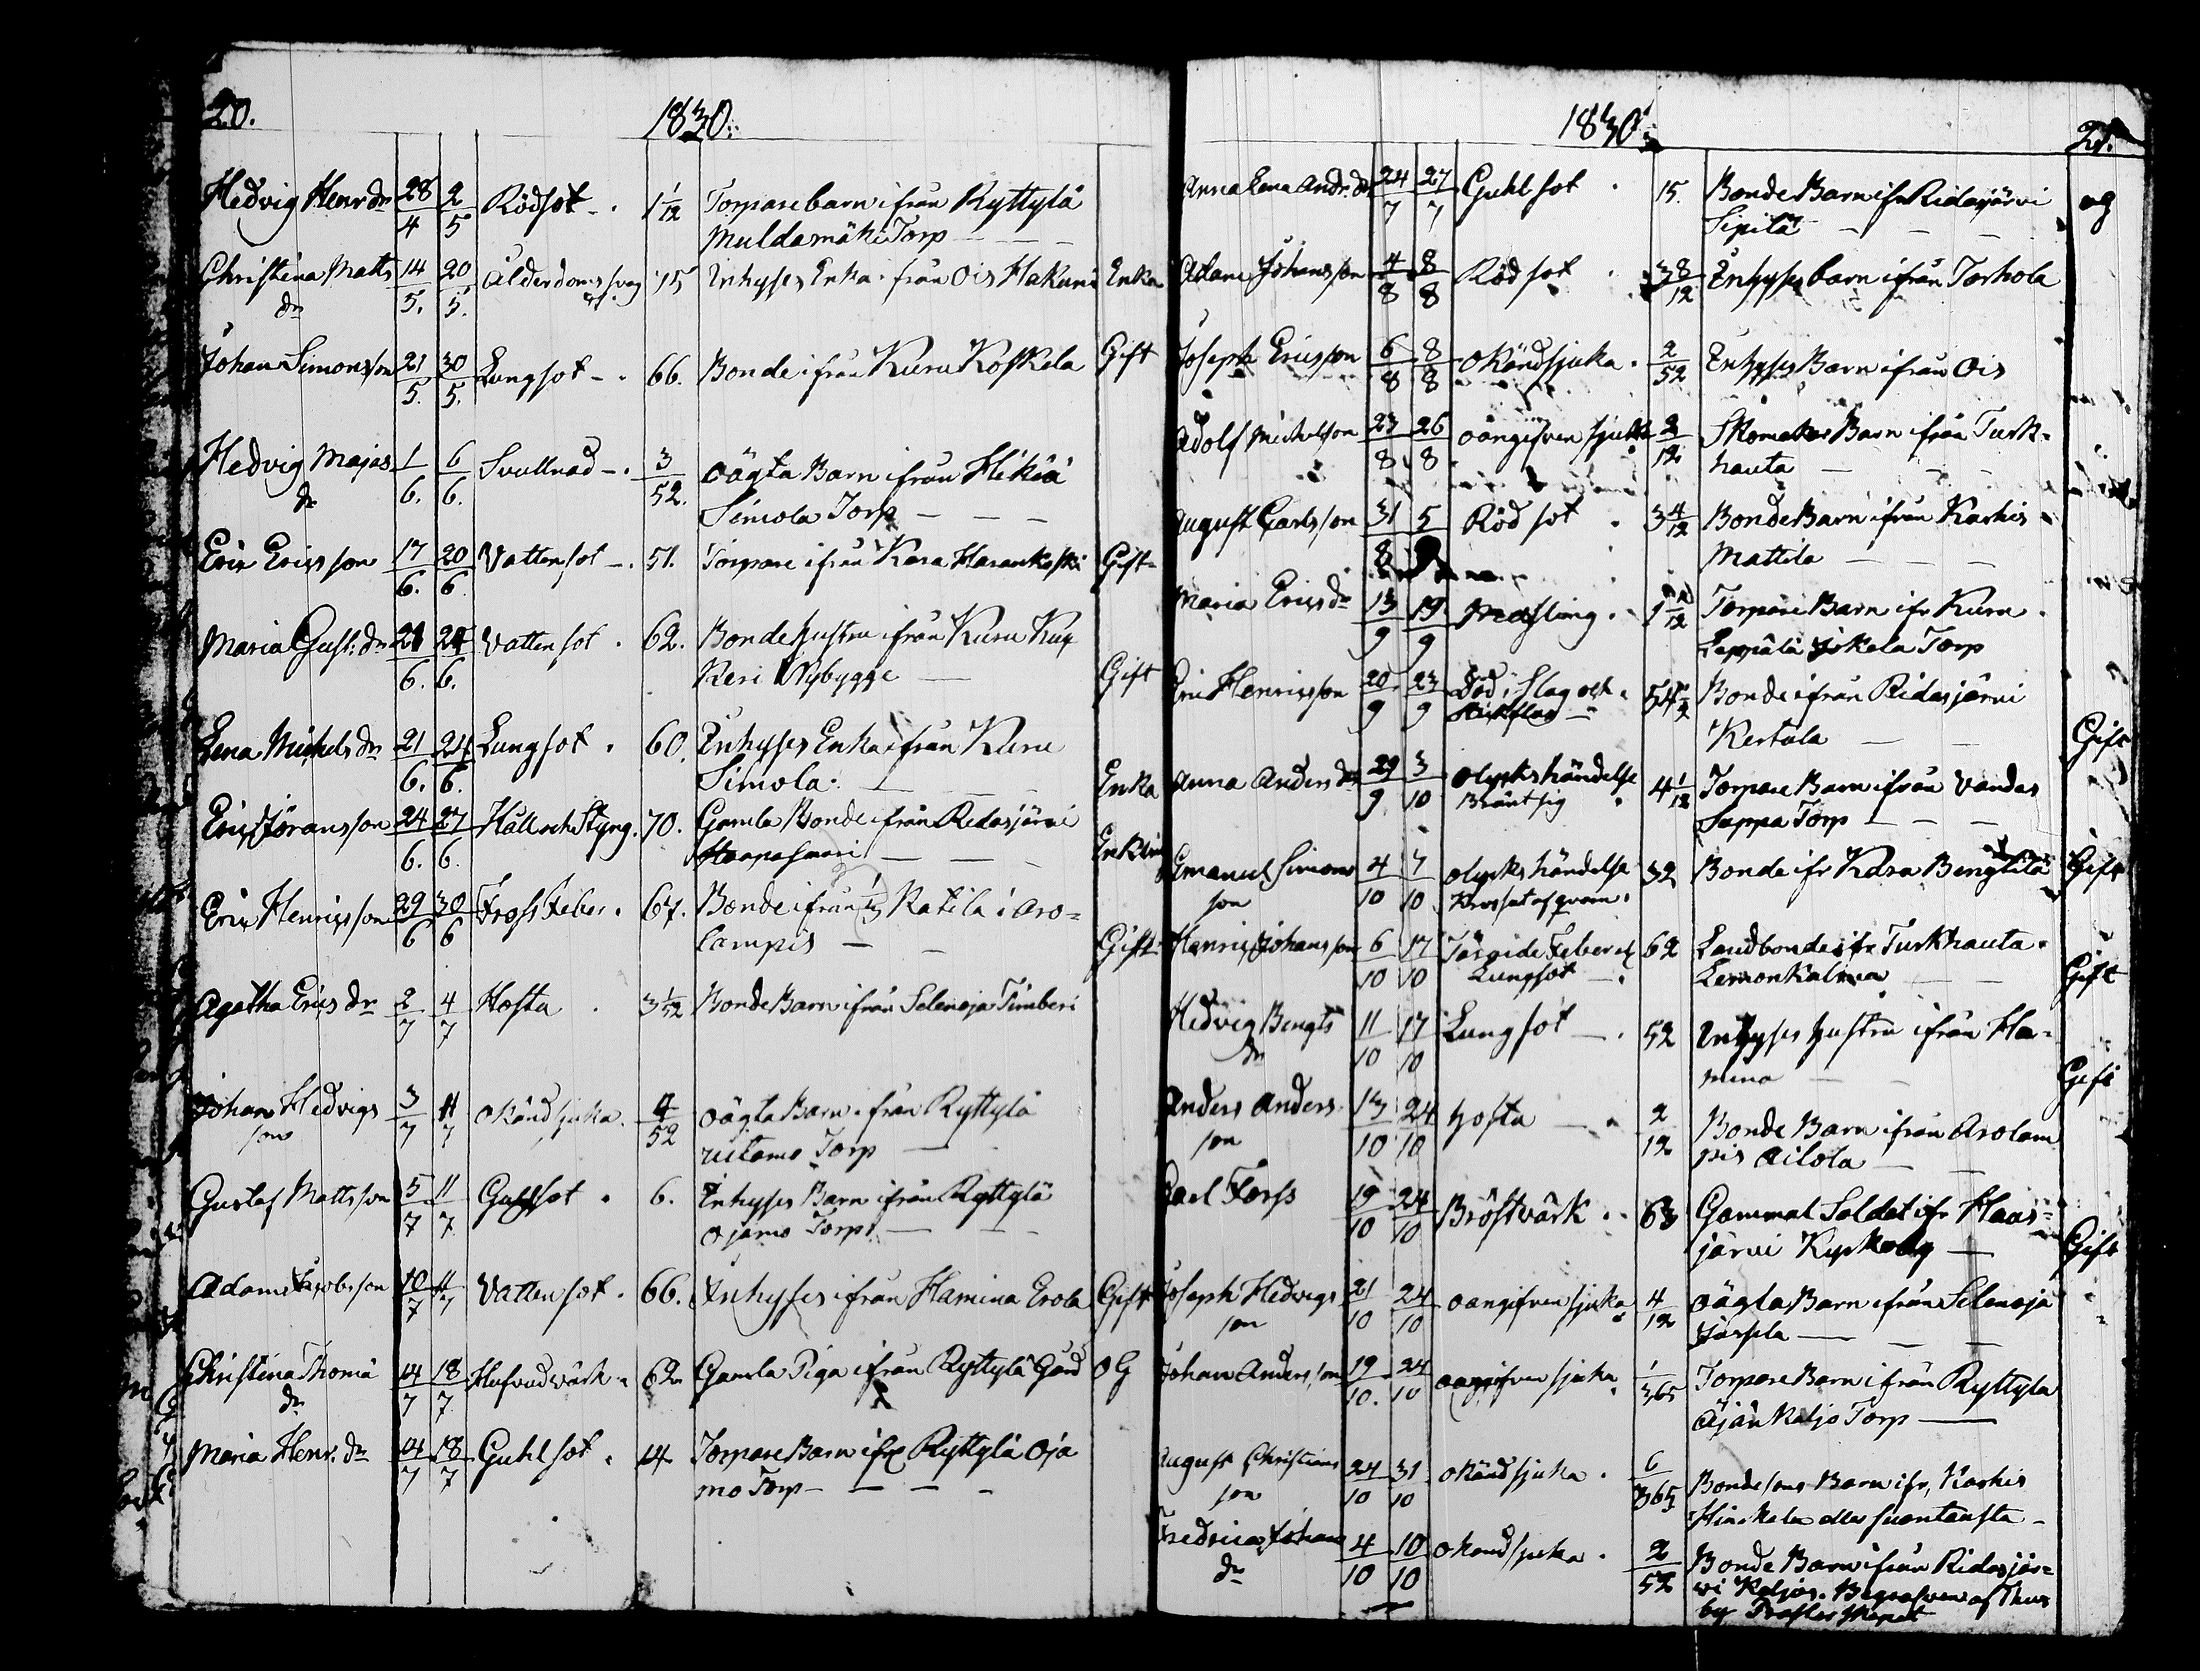 20.
1830.
Hedvig Henr dr 28/4 2/5 Rödsot 1 1/12 Torparebarn ifrån Ryttylä
Muldamäki Torp
Christina Matts 14/5. 20/5. Ålderdoms svag 75 Inhyses Enka ifrån Ois Hakuni Enka
dr
Johan Simonsson 21/5. 30/5. Lungsot 66. Bonde ifrån Kuru Koskela Gift
Hedvig Majas 1/6. 6/6. Svullnad 3/52. Oägta Barn ifrån Hikiä
dr Simola Torp
Eric Ericsson 17/6. 20/6. Vattensot 51. Torpare ifrån Kara Haran Gift
Maria Gust: dr 21/6. 24/6. Vattensot 62. Bonde hustru ifrån Kuru
Keri Nybygge Gift
Lena Michels dr 21/6. 24/6. Lungsot 60. Inhyses Enka ifrån Kuru
Simola Enka
Eric Göransson 24/6. 27/6. Håll och Styng. 70. Gamla Bonde ifrån Ridasjärvi
Enkling
Eric Henricsson 29/6 30/6 Frossfeber 67. Bonde ifrån Ratila i Aro=
lampis Gift
Agatha Erics dr 2/7 4/7 Hosta 3 1/12 Bonde Barn ifrån Selenoja Timberi
Johan Hedvigs 3/7 11/7 Okänd sjuka 4/52 Oägta Barn ifrån Ryttylä
son Torp
Gustaf Mattsson 5/7 11/7 Guhlsot 6. Inhyses Barn ifrån Ryttylä
Ojamo Torp
Adam Jacobsson 10/7 11/7 Vattensot 66. Inhyses ifrån Hamina Erola Gift
Christina Thoma 14/7 18/7 Hufvudvärk 62 Gamla Piga ifrån Ryttylä Gård OG
dr
Maria Henr. dr 14/7 18/7 Guhlsot 14 Torpare Barn ifr Ryttylä Oja
mo Torp
1830.
21.
Anna Lena Andr. dr 24/7 27/7 Guhlsot 15. Bonde Barn ifr Ridasjärvi og
Sipilä
Adam Johansson 4/8 8/8 Rödsot 3 8/12 Inhyses barn ifrån Torhola
Joseph Ericsson 6/8 8/8 Okänd sjuka 2/52 Inhyses Barn ifrån Ois
Adolf Michelson 23/8 26/8 Oångifven sjuka 2/12 Skomakar Barn ifrån Turk=
hauta
August Carlsson 31/8 5 Rödsot 3 4/12 Bonde Barn ifrån Karhis
Mattila
Maria Erics dr 13/9 19/9 Mässling 1 /12 Torpare Barn ifr Kuru
Leppälä Jokela Torp
Eric Henricsson 20/9 23/9 Död i Slag och 54 Bonde ifrån Ridasjärvi
Kertula Gift
Anna Anders dr 29/9 3/10 Olyckshändelse 4 1/12 Torpare Barn ifrån Vandas
Bränt sig Seppa Torp
Emanuel Simons 4/10 7/10 Olyckshändelse 32 Bonde ifr Kara Bengtilä Gift
son Krossat af qvarn
Henric Johansson 6/10 17/10 Tärande Feber och 62 Landbonde ifr Turkhauta
Lungsot Lemonkalma Gift
Hedvig Bengts 11/10 17/10 Lungsot 52 Inhyses hustru ifrån Ha=
dr mina Gift
Anders Anders 13/10 24/10 hosta 2/12 Bonde Barn ifrån Arolam
son pis Ailola
Carl Forss 19/10 24/10 Bröstvärk 63 Gammal Soldat ifr Haas=
järvi Gift
Joseph Hedvigs 21/10 24/10 Oangifven sjuka 4/12 Oägta Barn ifrån Selenoja
son
Johan Andersson 19/10. 24/10 Oangifven sjuka 1/365 Torpare Barn ifrån Ryttylä
Äjän Kaljo Torp
August Christians 24/10 31/10 Okänd sjuka 6/365 Bondesons Barn ifr, Karhis
son
Fredrica Johans 4/10 10/10 Okänd sjuka 2/52 Bonde Barn ifrån Ridasjär=
dr vi Kaljas. Begrafven af Thus
by